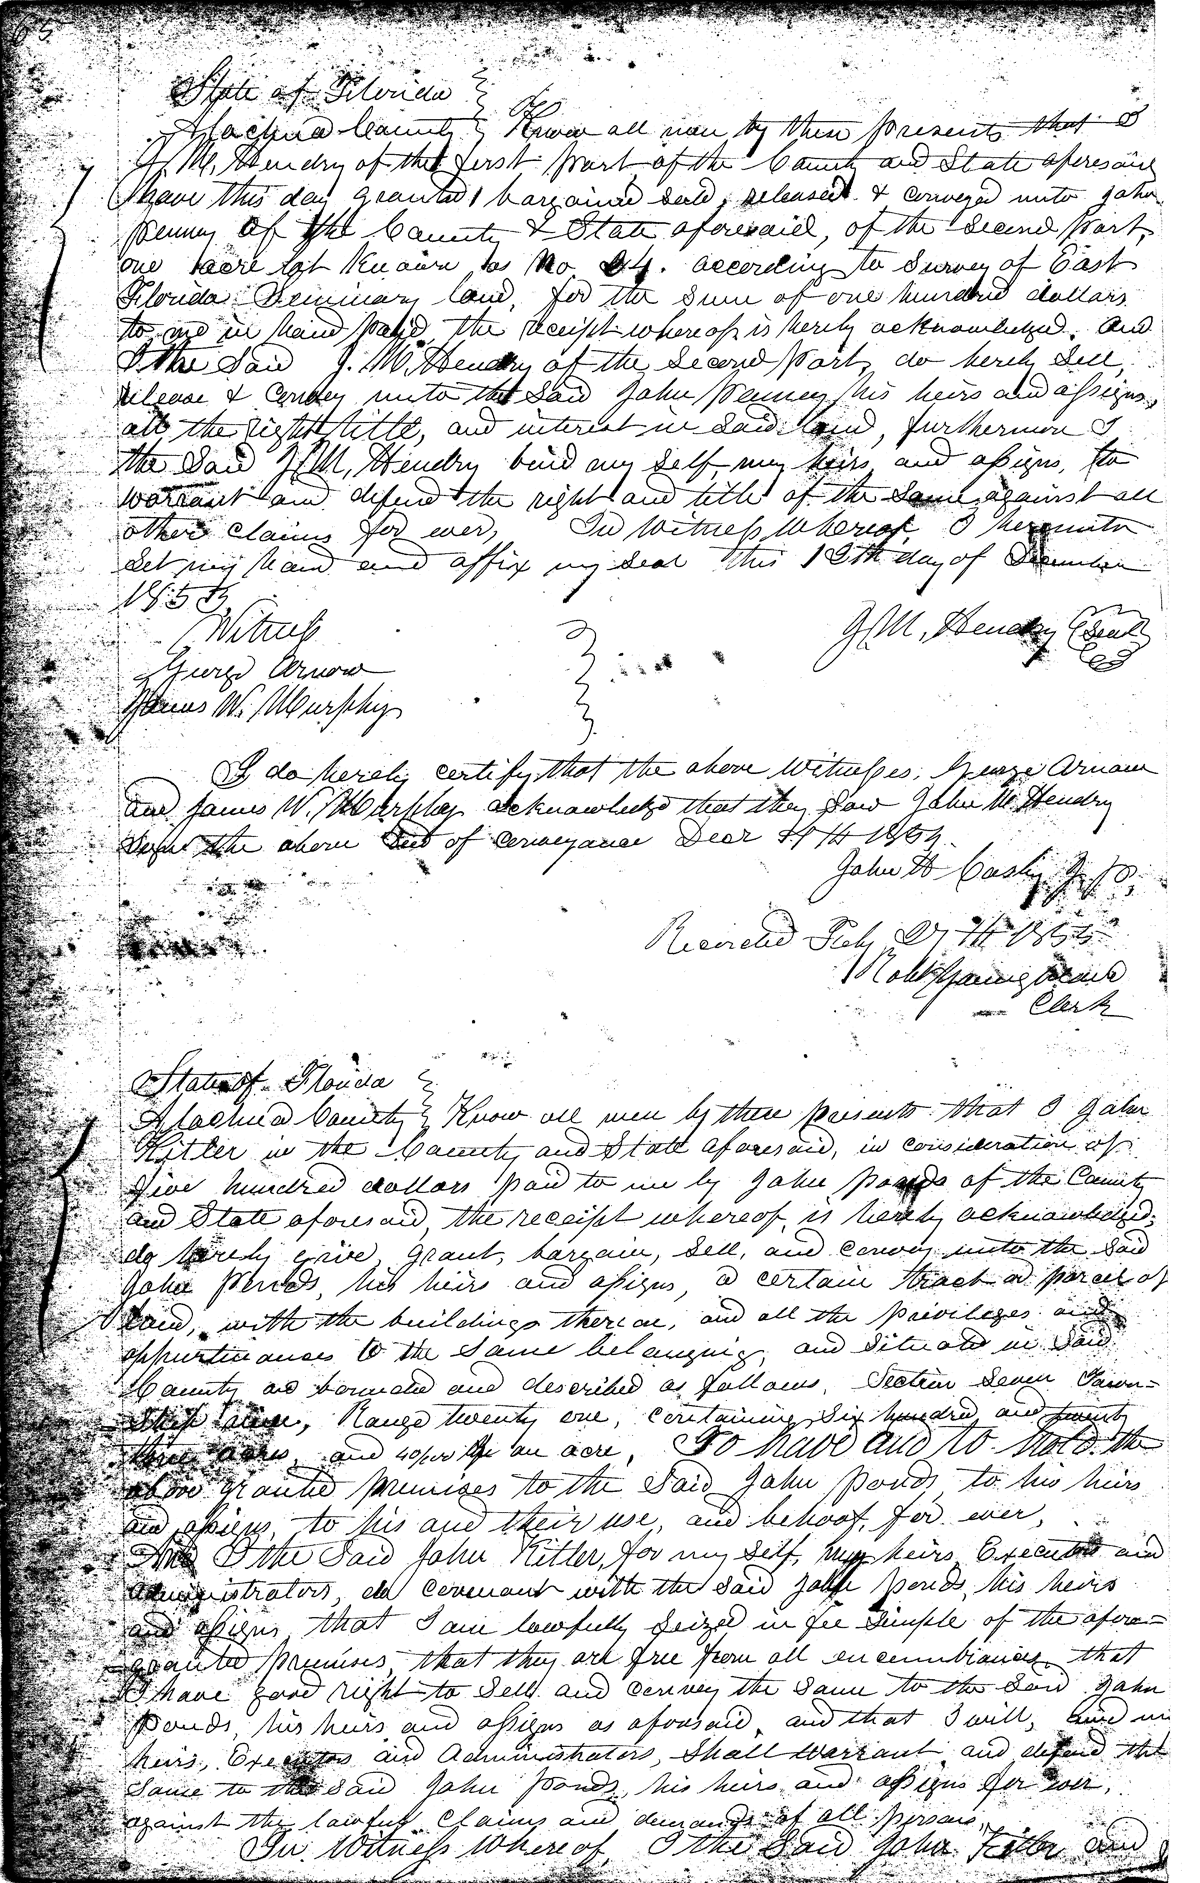 65
State of Florida
Alachua County Know all men by these presents that I
J. M. Hendry of the first part, of the County and State aforesaid
have this day granted, bargained sold, released & conveyed unto John
Penney of the County & State aforesaid, of the second part,
one acre lot Known as No 24. according to Survey of East
Florida Seminary land, for the sum of one hundred dollars
to me in hand paid, the receipt whereof is hereby acknowledged. And
I the said J. M. Hendry of the Second part, do hereby Sell,
release & Convey unto the said John Penney, his heirs and assigns,
all the right, title, and interest in Said land, furthermore I
the Said J. M, Hendry bind my self, my heirs, and assigns, to
warrant and defend the right and title of the Same against all
other claims for ever, In Witness Whereof, I hereunto
Set my hand and affix my Seal this 13th day of December
185
Witness J. M, Hendry Seal
George Arnow
James W. Murphy
I do hereby certify that the above Witnesses, George Arnow
and James W. Murphy acknowledge that they Saw John M. Hendry
Sign the above Deed of Conveyance Decr
John H Cash J. P.
Recorded Feby 27th 185
Robt Youngblood
Clerk
State of Florida
Alachua County Know all men by these presents that I John
Kitler in the County and State aforesaid, in consideration of
five hundred dollars paid to me by John Ponds of the County
and State aforesaid, the receipt whereof, is hereby acknowledged,
do hereby give, grant, bargain, Sell, and convey unto the Said
John Ponds, his heirs and assigns, a certain tract or parcel of
land, with the buildings thereon, and all the privileges and
appurtenances to the Same belonging, and Situate in Said
County and bounded and described as follows, Section Seven Town=
Ship nine, Range twenty one, containing Six hundred and twenty
three acres, and 40/100 of an acre, To have and to hold the
above granted premises to the Said John Ponds, to his heirs
and assigns, to his and their use, and behoof, for ever,
And I the Said John Kitler, for my self, my heirs, Executors and
Administrators, do covenant with the Said John Ponds, his heirs
and assigns, that I am lawfully Seized in fee Simple of the afore=
granted premises, that they are free from all encumbrances, that
I have good right to Sell and convey the Same to the Said John
Ponds, his heirs and assigns as aforesaid, and that I will, and my
heirs, Executors and Administrators, Shall Warrant and defend the
Same to the Said John Ponds, his heirs and assigns for ever,
against the lawful Claims and demands of all persons,
In Witness Whereof, I the Said John Kitler and